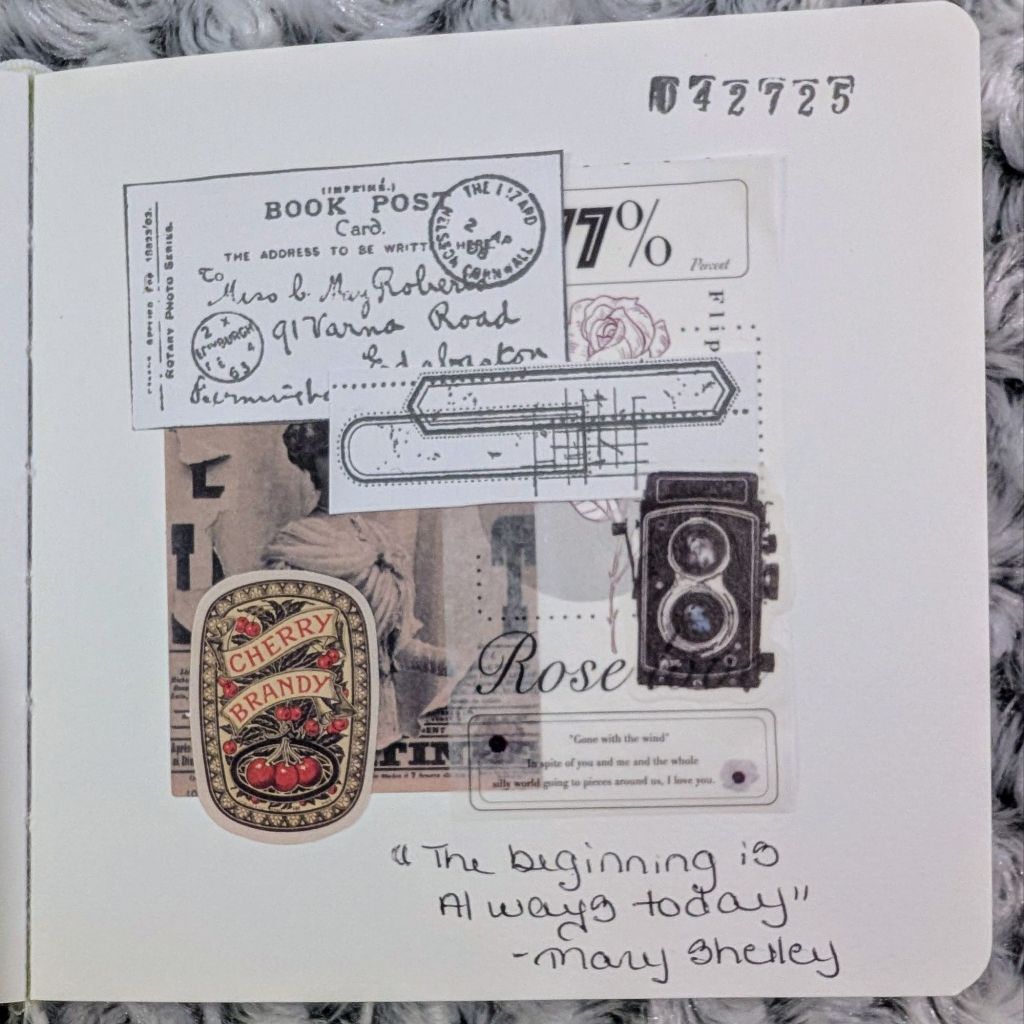 042725
(IMPRIMÉ.)
BOOK POST
Card.
THE ADDRESS TO BE WRITT HERE
ROTARY PHOTO SERIES.
THE LIZARD
2 AP
CORNWALL
To
Miss C. May Roberts
91 Varna Road
Edgbaston
77%
Percent
Flip
CHERRY
BRANDY
TIN
Rose
"Gone with the wind"
In spite of you and me and the whole
silly world going to pieces around us, I love you.
"The beginning is
Always today"
-Mary Shelley